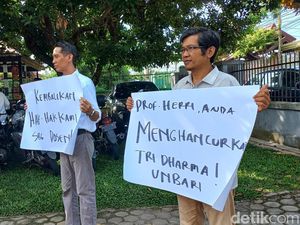 KEMBALIKAN
HAK-HAK KAMI
SBG DOSEN!
PROF. HERRI, ANDA
MENGHANCURKA
TRI DHARMA!
UNBARI
detikcom